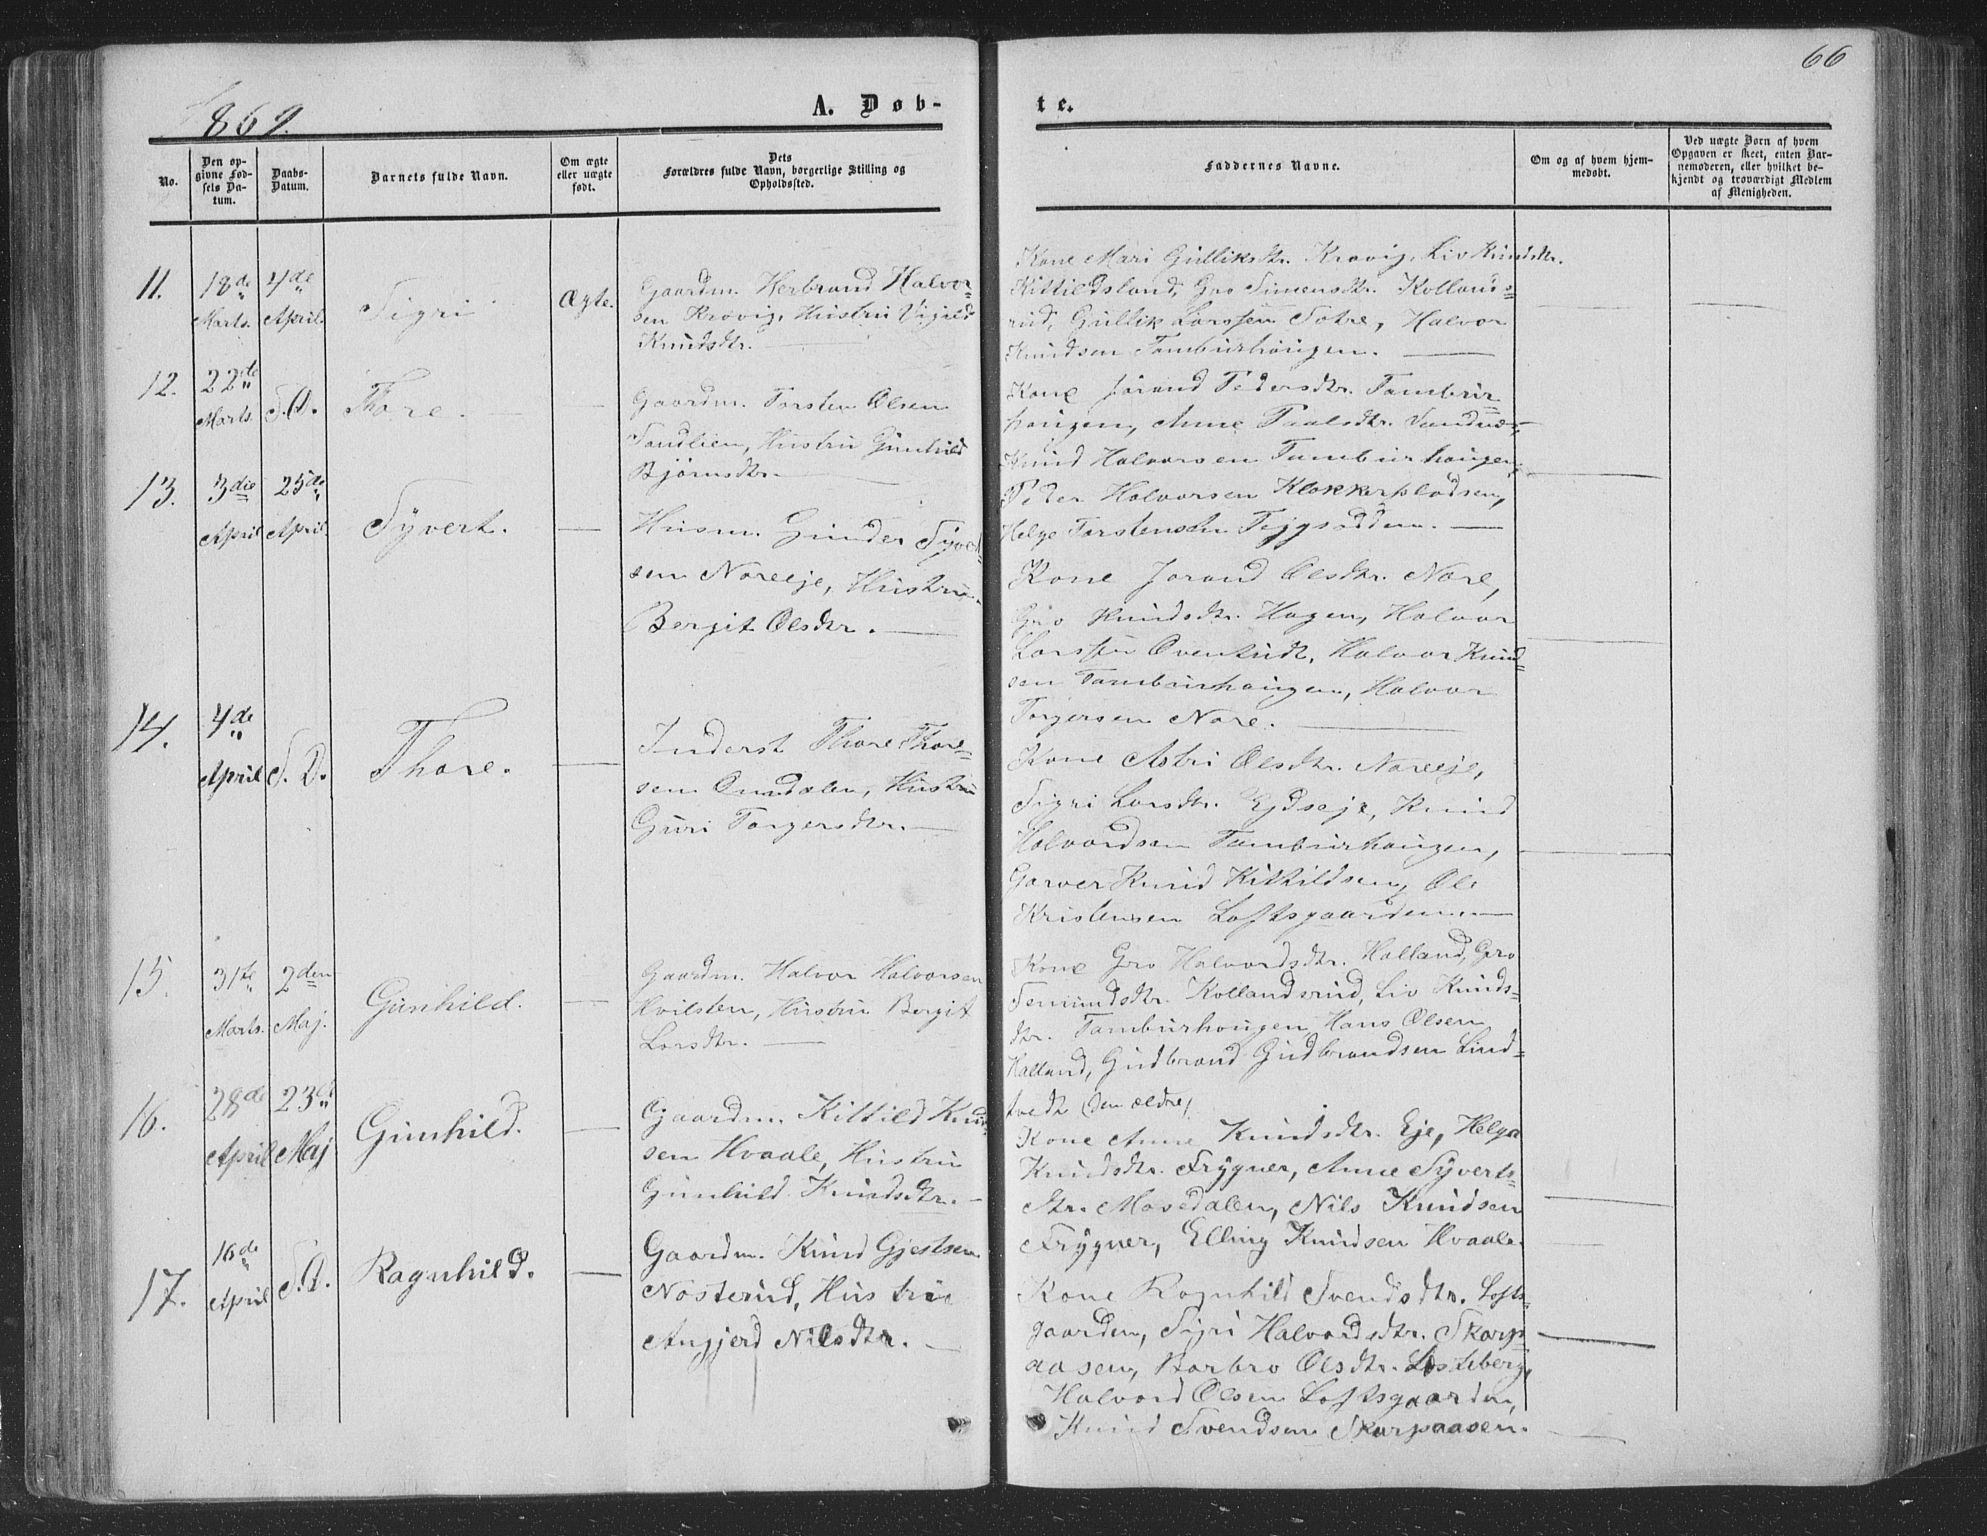 66
1869.
A. Døb-
te.
No.
Den op-
givne Fød-
sels Da-
tum.
Daabs-
Datum.
Barnets fulde Navn.
Om ægte
eller uægte
født.
Dets
Forældres fulde Navn, borgerlige Stilling og
Opholdssted.
Faddernes Navne.
Om og af hvem hjem-
medøbt.
Ved uægte Børn af hvem
Opgaven er skeet, enten Bar-
nemoderen, eller hvilket be-
kjendt og troværdigt Medlem
af Menigheden.
11.
18de
Marts.
4de
April.
Sigri
Ægte.
Gaardm. Herbrand Halvor-
sen Kravig, Hustru Vigild
Knudsdtr.
Kone Mari Gulliksdtr. Kravig, Liv Knudsdtr.
Kittildsland, Gro Simensdtr. Kollands-
rud, Gullik Larssen Sotre, Halvor
Knudsen Tamburhaugen.
12.
22de
Marts.
S. D.
Thore.
Gaardm. Torsten Olsen
Sandlien, Hustru Gunhild
Bjørnsdtr.
Kone Jorand Pedersdtr. Tambur-
haugen, Anne Paalsdtr. Sandnes,
Knud Halvorsen Tamburhaugen,
Peder Halvorsen Klokkerpladsen,
Helge Torstensen
13.
3die
April
25de
April.
Syvert.
Husm. Gunder Syvert-
sen Nareeje, Hustru
Bergit Olsdtr.
Kone Jorand Olsdtr. Nare,
Gro Knudsdtr. Hagen, Halvor
Larssen Ovenhidt, Halvor Knud-
sen Tamburhaugen, Halvor
Torgersen Nare.
14.
4de
April
S. D.
Thore.
Inderst Thore Thore-
sen Aandalen, Hustru
Guri Torgersdtr.
Kone Astri Olsdtr. Nareeje,
Sigri Larsdtr. Eydseje, Knud
Halvordsen Tamburhaugen,
Garver Knud Kittildsen, Ole
Kristensen Loftsgaarden.
15.
31te
Marts.
2den
Maj.
Gunhild.
Gaardm. Halvor Halvorsen
Hvilsten, Hustru Bergit
Larsdtr.
Kone Gro Halvordsdtr. Halland, Gro
Semundsdtr. Kollandsrud, Liv Knuds-
dtr. Tamburhaugen, Hans Olsen
Halland, Gudbrand Gudbrandsen Lind-
tvedt (den ældre)
16.
28de
April
23de
Maj
Gunhild.
Gaardm. Kittild Knud-
sen Hvaale, Hustru
Gunhild Knudsdtr.
Kone Anne Knudsdtr. Eje, Helga
Knudsdtr. Frygner, Anne Syverts-
dtr. Mosedalen, Nils Knudsen
Frygner, Elling Knudsen Hvaale.
17.
16de
April
S. D.
Ragnhild.
Gaardm. Knud Gjestsen
Nøsterud, Hustru
Angjerd Nilsdtr.
Kone Ragnhild Svendsdtr. Lofts-
gaarden, Sigri Halvordsdtr. Skarp-
aasen, Barbro Olsdtr. Losteberg,
Halvord Olsen Loftsgaarden,
Knud Svendsen Skarpaasen.